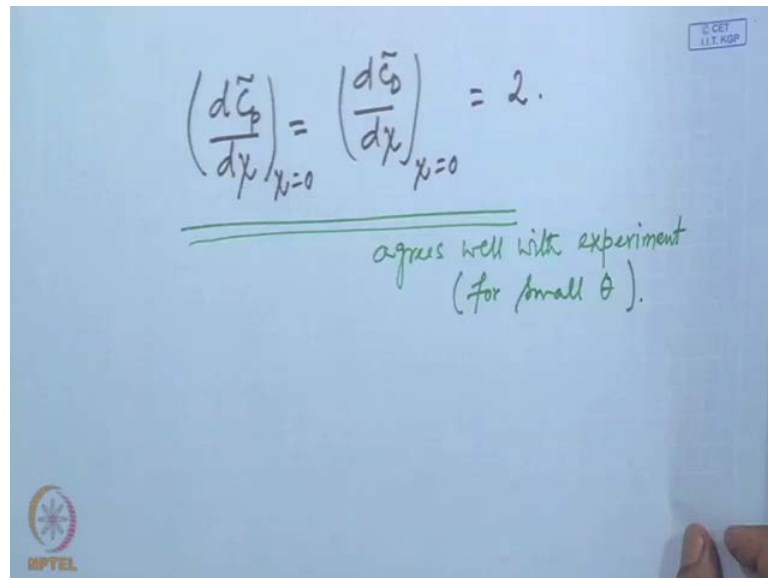 © CET
I.I.T. KGP
(dC̃p/dχ)χ=0 = (dC̃D/dχ)χ=0 = 2.
agrees well with experiment
(for small θ).
NPTEL